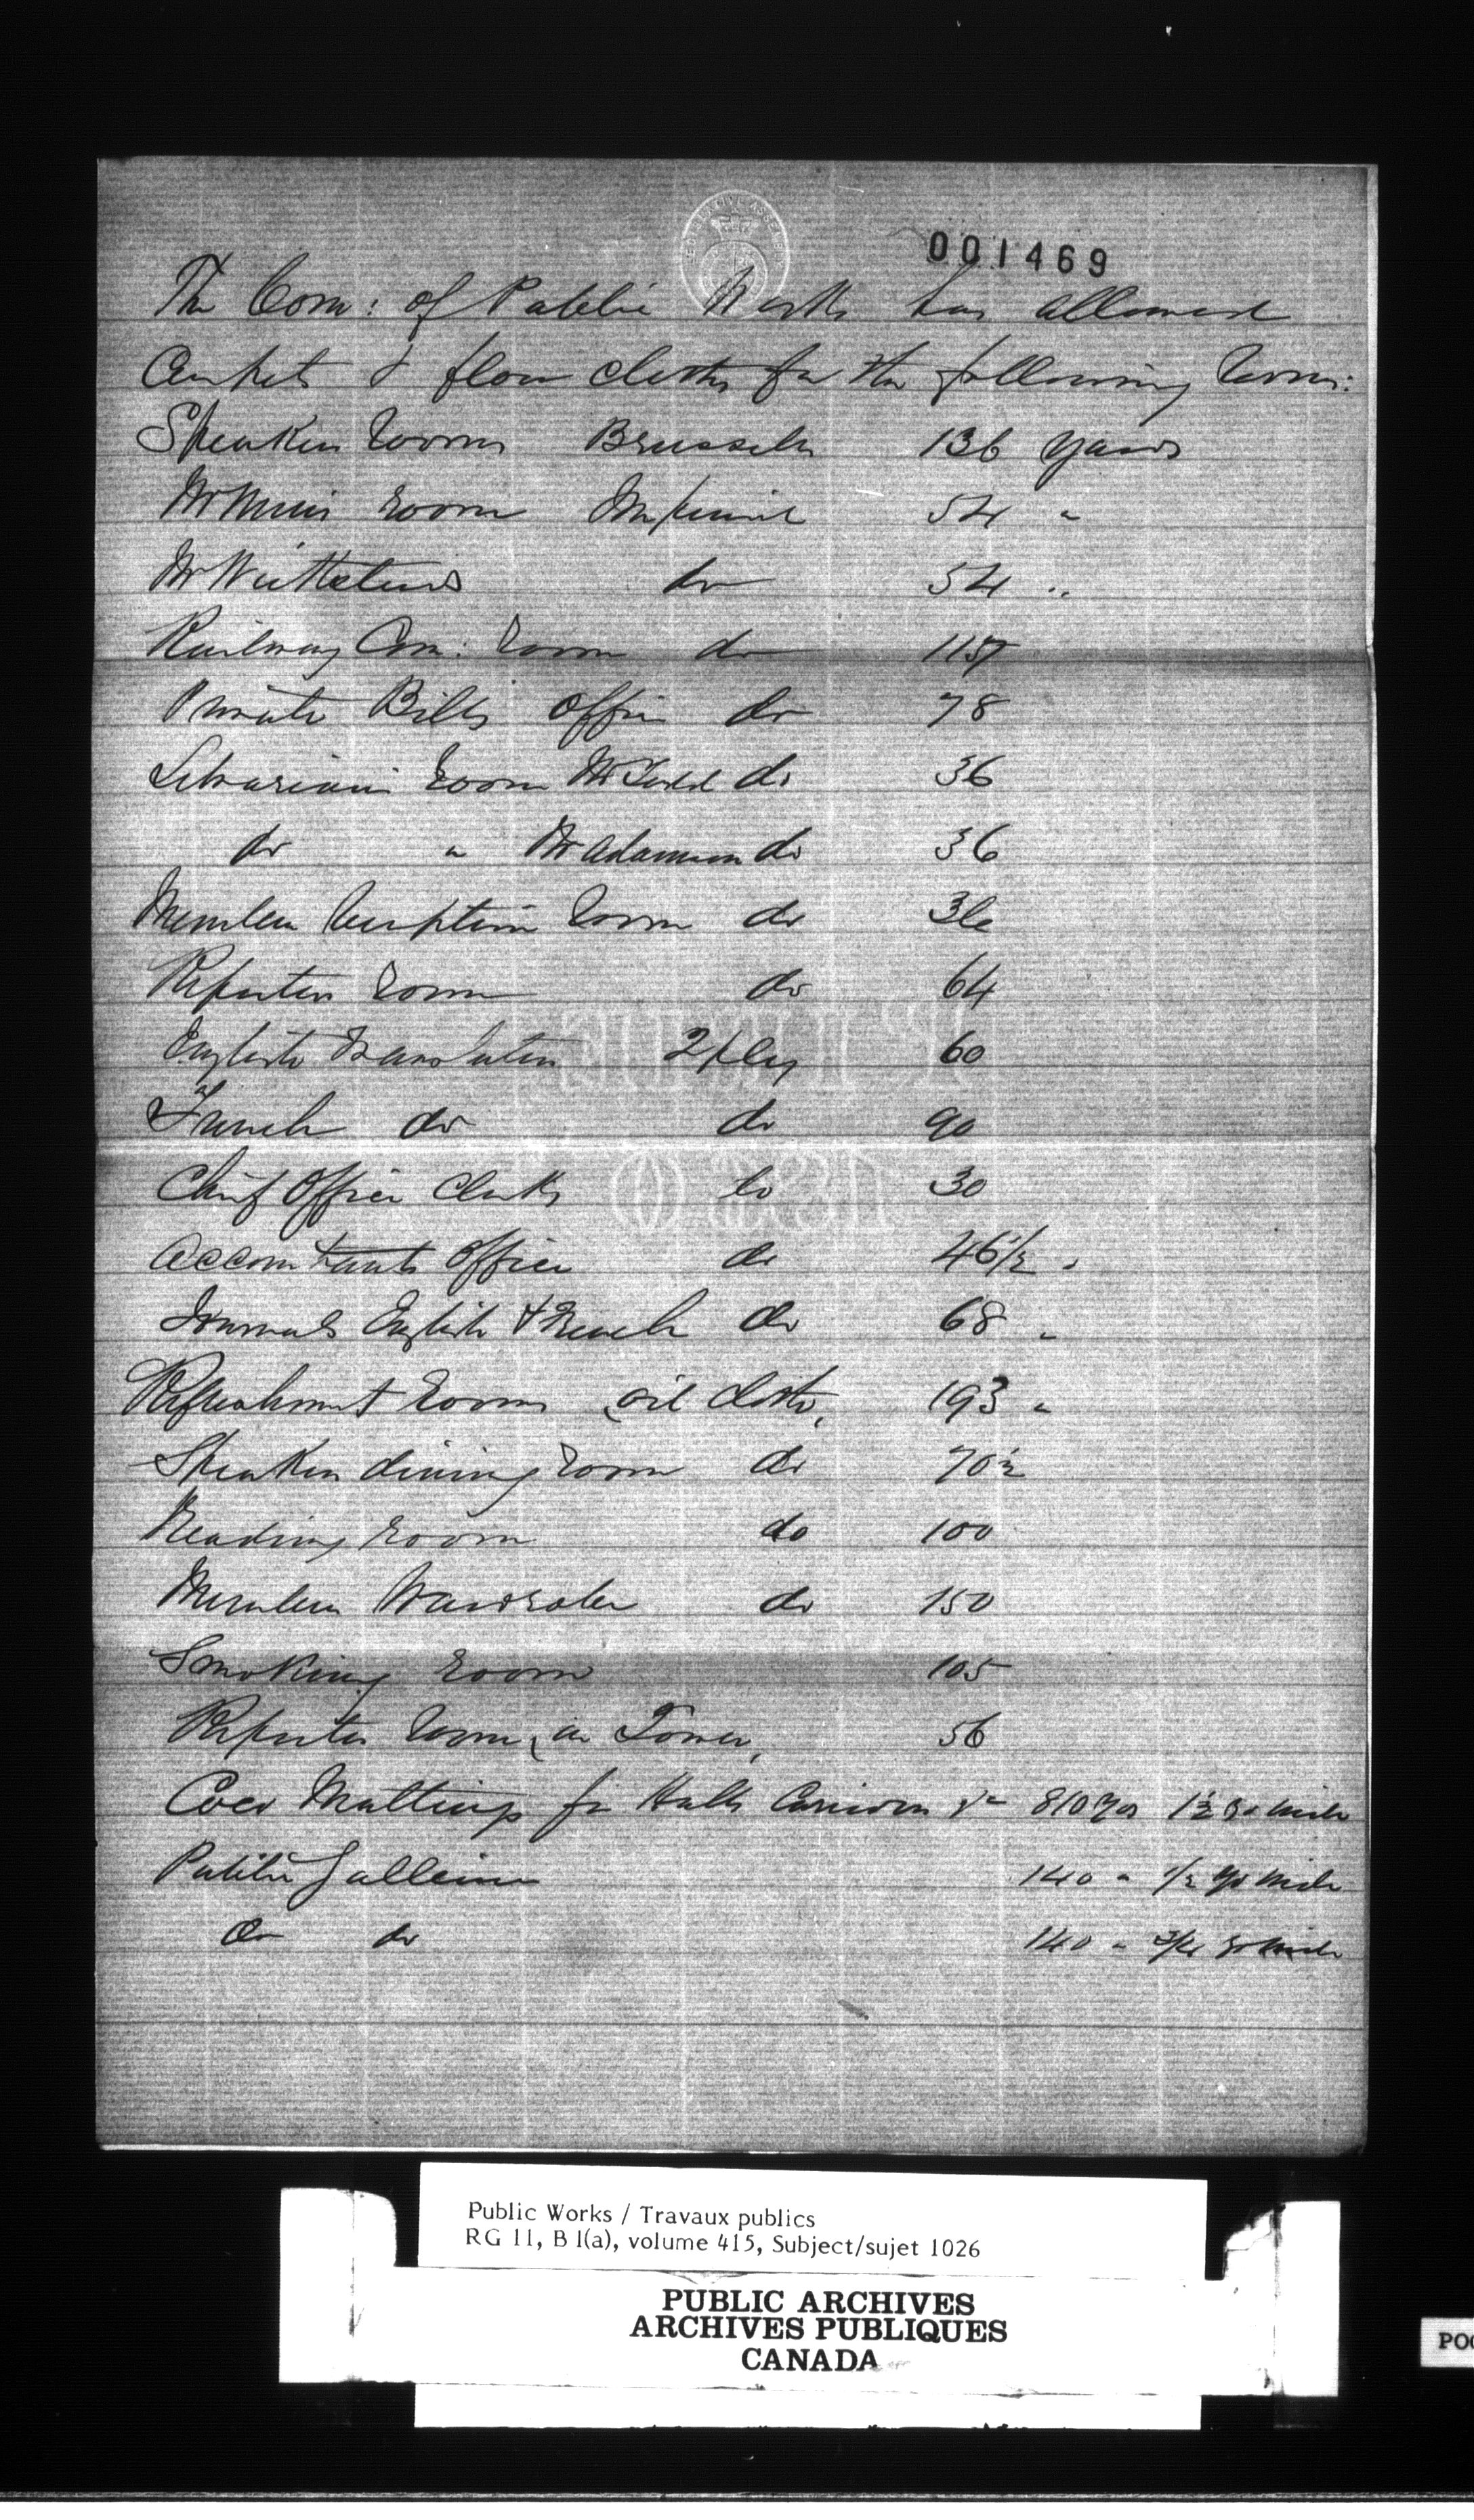 001469
The Com: of Public Works has allowed
Carpets & floor cloths for the following rooms:
Speakers rooms Brussels 136 yards
Mr Muirs room Imperial 54 "
Mr do 54 "
Railway Com: room do 115
Private Bills office do 78
Librarians room Mr Todd do 36
do " Mr Adamson do 36
Members reception room do 36
Reporters room do 64
English Translators 2 ply 60
French do do 90
Chief Office Clerks do 30
Accountants Office do 46 1/2 "
Journals English & French do 68 "
Refreshment rooms oil cloth, 193 "
Speakers dining room do 70 1/2
Reading room do 100
Members Wardrobe do 150
Smoking room 105
Reporters room, in Tower, 56
Coco Mattings for Halls Corridors &c 810 yds 1 1/2 yd wide
Public Galleries 140 " 1/2 yd wide
do do 140 " 3/4 yd wide
Public Works / Travaux publics
RG 11, B 1(a), volume 415, Subject/sujet 1026
PUBLIC ARCHIVES
ARCHIVES PUBLIQUES
CANADA